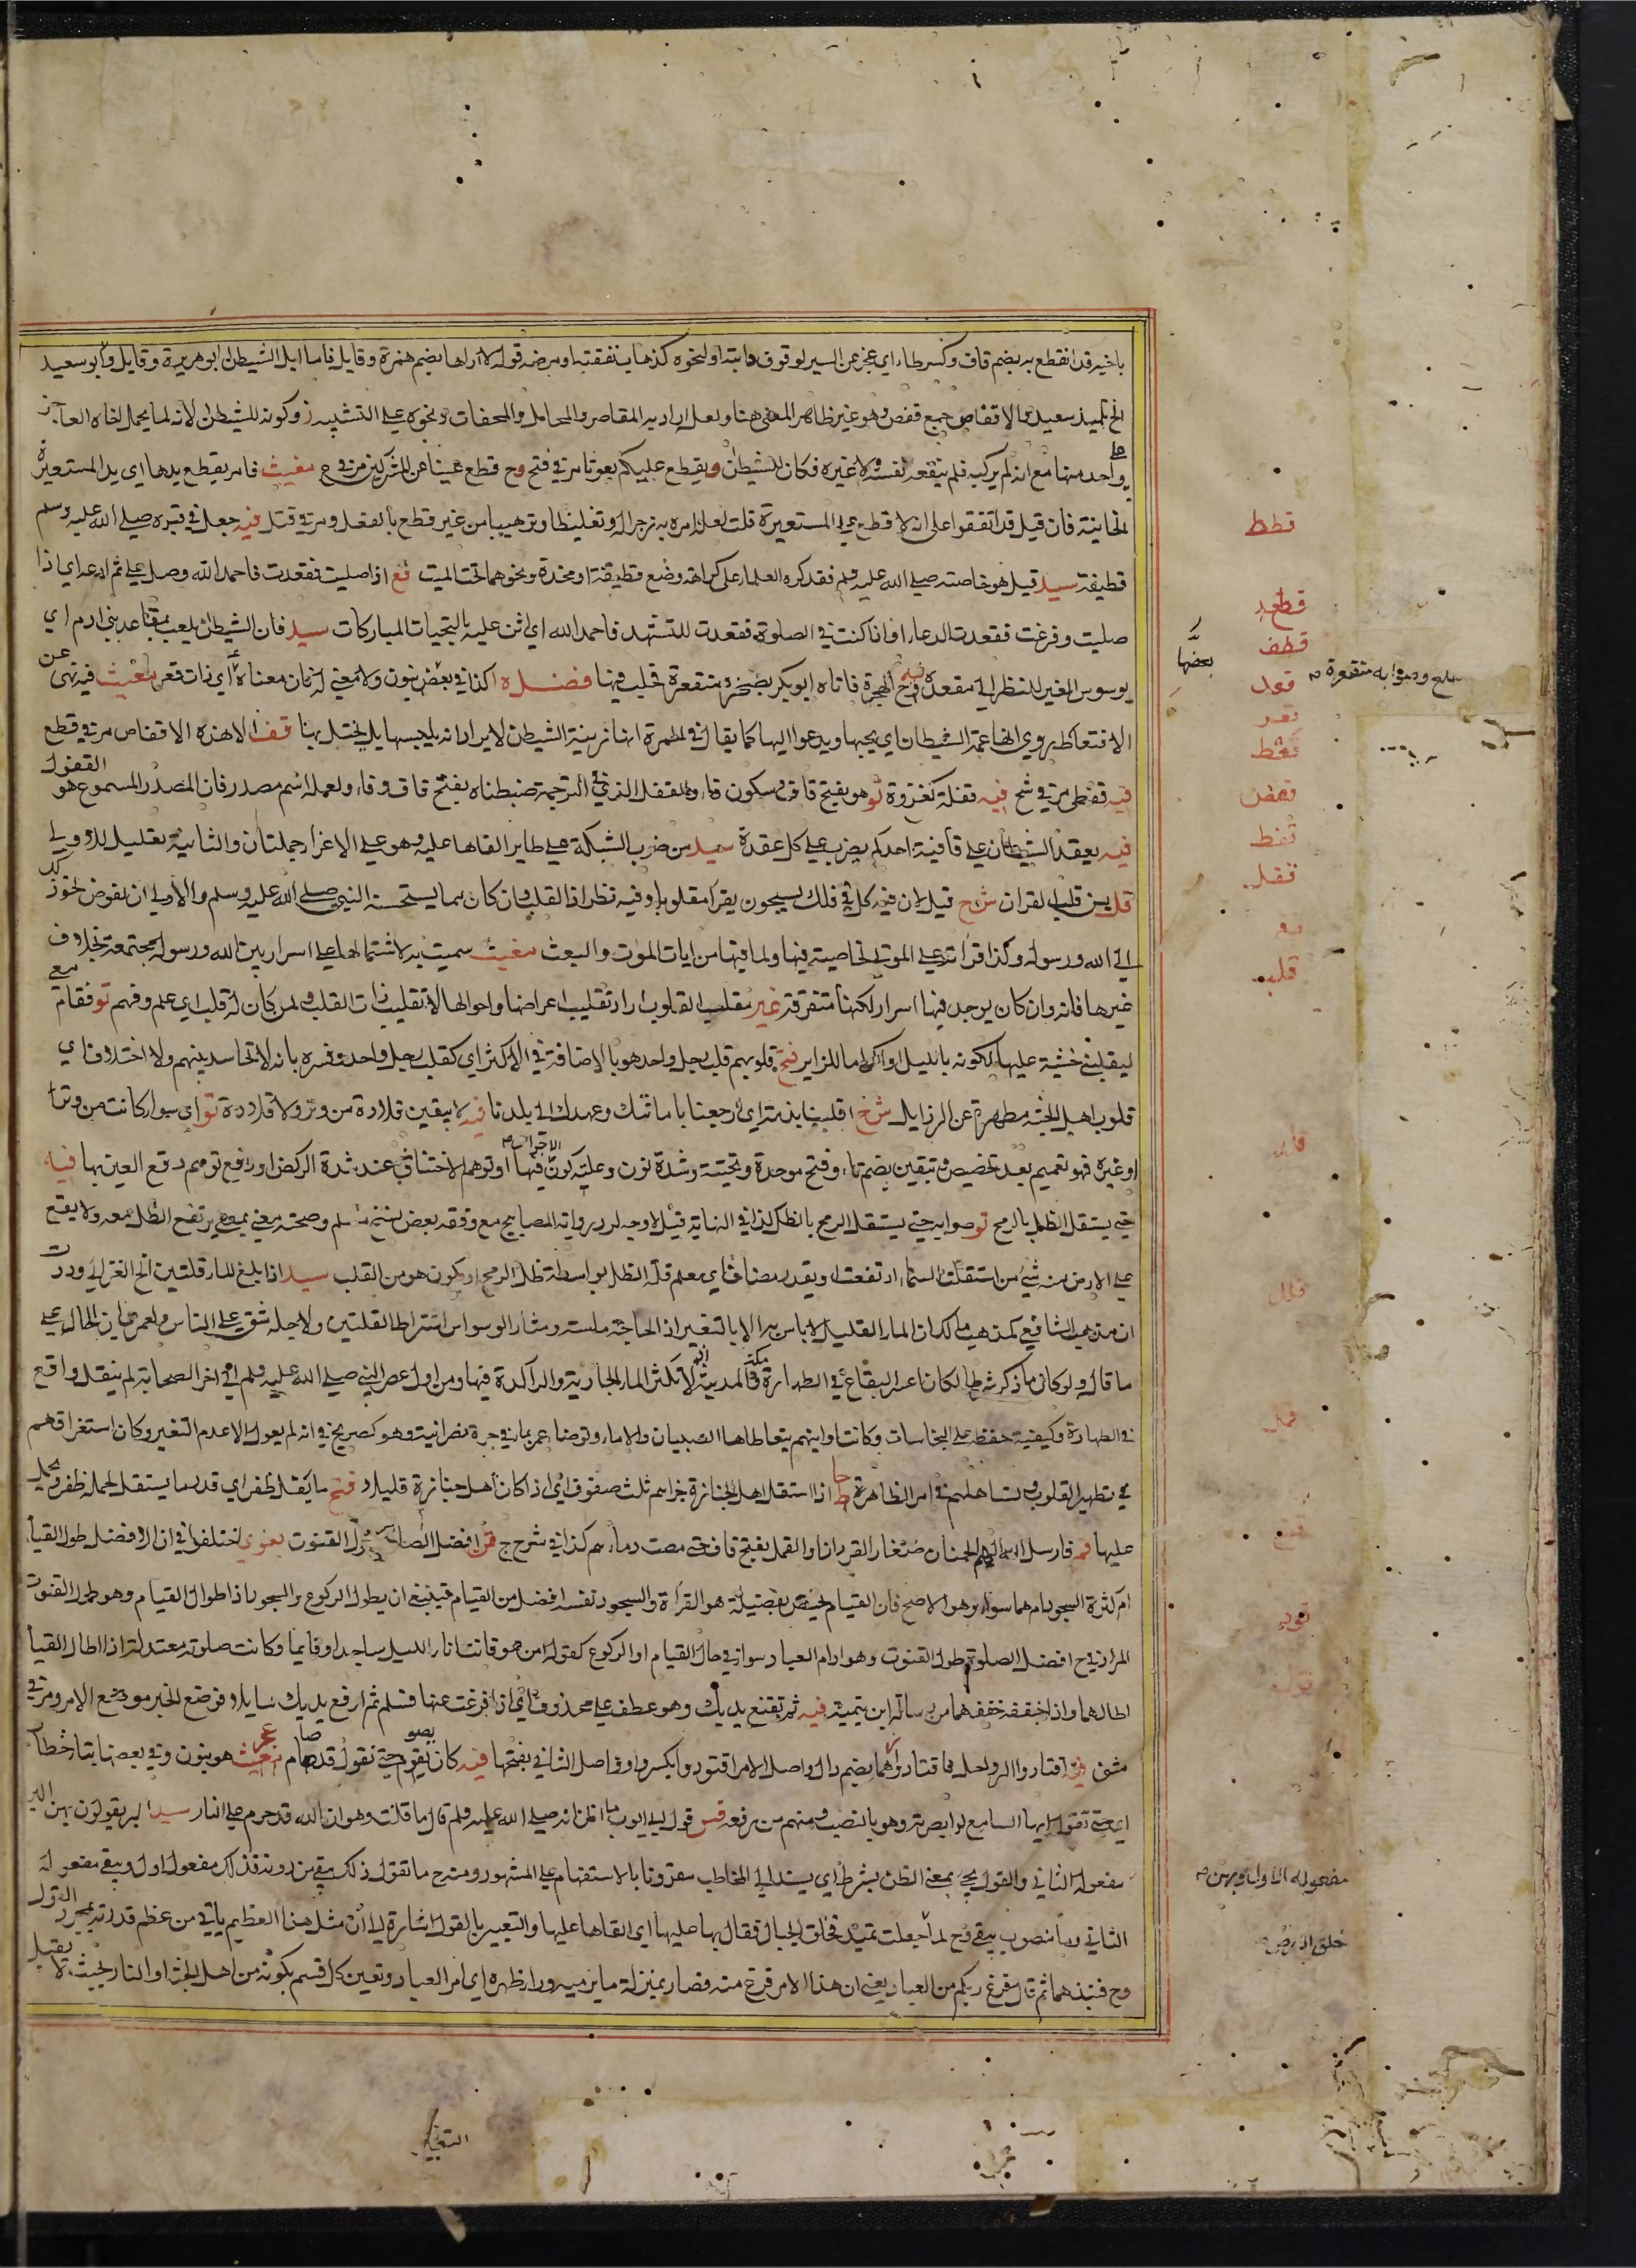 باخيه قد انقطع به بضم قاف وكسر طاء اي عجز عن السير لوقوف دابته او نحوه كذهاب نفقته او مرضه قوله لا اراها بضم همزة وقايل فاما ابل الشيطان ابو هريرة وقايل وابو سعيد
الخ تلميذ سعيد والاقفاص جمع قفص وهو غير ظاهر المعنى هنا ولعل اراد به المقاصر والمحامل والمحفات ونحوه على التشبيه وكونه للشيطان لانه لما يحمل اخاه العاجز
واحد منها مع انه لم يركب فلم ينفعه نفسه ولا غيره فكان للشيطان ويقطع عليكم بعوثا مر في فتح وح قطع عينا عن المشركين مر في ع مغيث فامر بقطع يدها اي يد المستعيرة
الخاينة فان قيل قد اتفقوا على انه لا قطع على المستعيرة قلت لعل امره به زجرا له وتغليظا وترهيبا من غير قطع بالفعل ومر في قتل فيه جعل في قبره صلى الله عليه وسلم
قطيفة سيد قيل هو خاصته صلى الله عليه وسلم فقد كره العلماء على كراهة وضع قطيفة او مخدة ونحوهما تحت الميت قع اذا صليت فقعدت فاحمد الله وصل علي ثم ادعه اي اذا
صليت وفرغت فقعدت للدعاء او اذا كنت في الصلوة فقعدت للتشهد فاحمد الله اي اثن عليه بالتحيات المباركات سيد فان الشيطان يلعب بمقاعد بني ادم اي
يوسوس الغير للنظر الى مقعده فتح الهجرة فاتاه ابو بكر بصخرة منقعرة فحلب فيها فضله اكذا في بعض بنون ولا معنى له زان معناه اي ذات قعر مغيث فيه نهى عن
الاقتعاط يروى انها عمة الشيطان اي يحبها ويدعوا اليها كما يقال في الحمرة انها زينة الشيطان لا يراد انه يلبسها بل يختل بها قف الا هذه الاقفاص مر في قطع
فيه قفطى مر في شح فيه قفلة كغزوة تو هو بفتح قاف وسكون فاء والقفل الذي في الترجمة ضبطناه بفتح قاف وفاء ولعله اسم مصدر فان المصدر المسموع هو القفول
فيه يعقد الشيطان على قافية احدكم يضرب على كل عقدة سيد من ضرب الشبكة على طاير القاها عليه وهو على الاغراء جملتان والثانية تعليل للاولى
قل يس قلب القران شرح قيل لان فيه كل في فلك يسبحون يقرأ مقلوبا وفيه نظر اذ القلب وان كان مما يستحسنه النبي صلى الله عليه وسلم والاولى ان يفوض نحو ذلك
الى الله ورسوله وكذا قراءته على الموتى لخاصية فيها ولما فيها من ايات الموت والبعث مغيث سميت به لاشتمالها على اسرار بين الله ورسوله مجتمعة بخلاف
غيرها فانه وان كان يوجد فيها اسرار لكنها متفرقة غير مقلب القلوب اراد تقليب اعراضها واحوالها لا تقليب ذات القلب ولمن كان له قلب اي علم وفهم تو فقام معي
ليقلبني خشية عليها لكونه بالليل او اكراما للزاير فتح قلوبهم قلب رجل واحد هو بالاضافة في الاكثر اي كقلب رجل واحد وفسره بانه لا تحاسد بينهم ولا اختلاف اي
قلوب اهل الجنة مطهرة عن الرزايل شرح اقلبنا بذمة اي ارجعنا بامانتك وعهدك الى بلدنا فيه لا يبقين قلادة من وتر ولا قلادة تو اي سواء كانت من وتر
او غيره فهو تعميم بعد تخصيص وتبقين بضم تاء وفتح موحدة وتحتية وشدة نون وعليه كون فيها الاجراس او توهم الاختناق عند شدة الركض او دفع توهم دفع العين بها فيه
حتى يستقل الظل بالرمح تو صوابه حتى يستقل الرمح بالظل كذا في النهاية قيل لا وجه لرد رواية المصابيح مع وفقه بعض نسخ مسلم وصحة معنى بمعنى يرتفع الظل معه ولا يقع
على الارض منه شيء من استقلت السماء ارتفعت او يقدر مضاف اي يعلم قلة الظل بواسطة ظل الرمح او يكون هو من القلب سيد اذا بلغ الماء قلتين الخ الغزالي وددت
ان مذهب الشافعي كمذهب مالك ان الماء القليل لا باس به الا بالتغير اذ الحاجة ماسة ومثار الوسواس اشتراط القلتين ولاجله شق على الناس ولعمري ان الحال على
ما قال ولو كان ما ذكر شرطا لكان اعسر البقاع في الطهارة مكة والمدينة اذ لا تكثر الماء الجارية والراكدة فيها ومن اول عصر النبي صلى الله عليه وسلم الى اخر الصحابة لم ينقل واقع
في الطهارة وكيفية حفظه على النجاسات وكانت اوانيهم يتعاطاها الصبيان والاماء وتوضأ عمر بماء في جرة نصرانية وهو كصريح في انه لم يعول الا عدم التغير وكان استغراقهم
في تطهير القلوب وتساهلهم في امر الظاهرة ط اذا استقل اهل الجنازة جزاهم ثلث صفوف اي اذا كان اهل جنازة قليلا فتح ما يقل ظفر اي قدر ما يستقل لحمله ظفر ويحمل
عليها قم فارسل الله عليهم الحمنان صغار القردان والقمل بفتح قاف حتى مصت دماءهم كذا في شرح ج قن افضل الصلاة طول القنوت بغوي اختلفوا في ان الافضل طول القيام
ام كثرة السجود ام هما سواء وهو الاصح فان القيام يختص بفضيلة هو القراءة والسجود نفسه افضل من القيام فينبغي ان يطول الركوع والسجود اذا طول القيام وهو طول القنوت
المراد في ح افضل الصلوة طول القنوت وهو ادام العبادة سواء في حال القيام او الركوع كقوله امن هو قانت اناء الليل ساجدا وقايما وكانت صلوته معتدلة اذا اطال القيام
اطالهما واذا خففه خففهما من رسالة ابن تيمية فيه ثم تقنع يديك وهو عطف على محذوف اي اذا فرغت عنها فسلم ثم ارفع يديك سايلا فوضع الخبر موضع الامر ومر في
مثنى فيه اقتادوا الرواحل فاقتادوا هما بضم دال واصل الامر اقتودوا بكسر واو واصل الثاني بفتحها فيه كان يصوم حتى نقول قد صام مغيث هو بنون وفي بعضها بتاء خطاب
اي حتى تقول ايها السامع لو ابصرته وهو بالنصب ومنهم من رفعه قس قول ابي ايوب ما اظن انه صلى الله عليه وسلم قال ما قلت وهو ان الله قد حرم على النار سيد البر يقولون بهن البر
مفعوله الثاني والقول يجيء بمعنى الظن بشرط اي يسند الى المخاطب مقرونا بالاستفهام على المشهور ومنه ح ما تقول ذلك يبقي من درنه فذلك مفعول اول ويبقي مفعوله
الثاني وما منصوب بيبقي وح لما جعلت تميد فخلق الجبال فقال بها عليها اي القاها عليها والتعبير بالقول اشارة الى ان مثل هذا العظيم ياتي من عظم قدرته بمجرد القول
وح فنبذهما ثم قال فرغ ربكم من العباد يعني ان هذا الامر فرغ منه فصار بمنزلة ما يرميه وراء ظهره اي امر العباد وتعين كل قسم بكونه من اهل الجنة او النار بحيث لا يقبل
التغير
قطط
قطع
قطف
قعد
قعر
قعط
قفص
قفط
قفل
قفو
قلب
قلد
قلل
قمل
قنع
قود
قول
بعضها
صلح وصوابه منقعرة
مفعوله الاول وبهن
خلق الارض